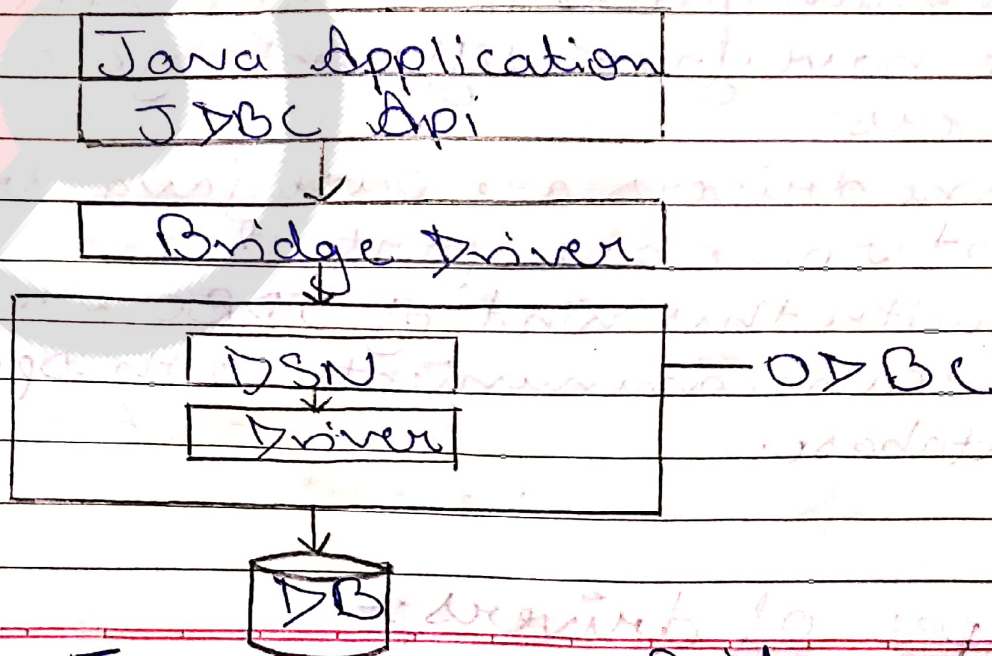 Java Application
JDBC Api
Bridge Driver
DSN
ODBC
Driver
DB